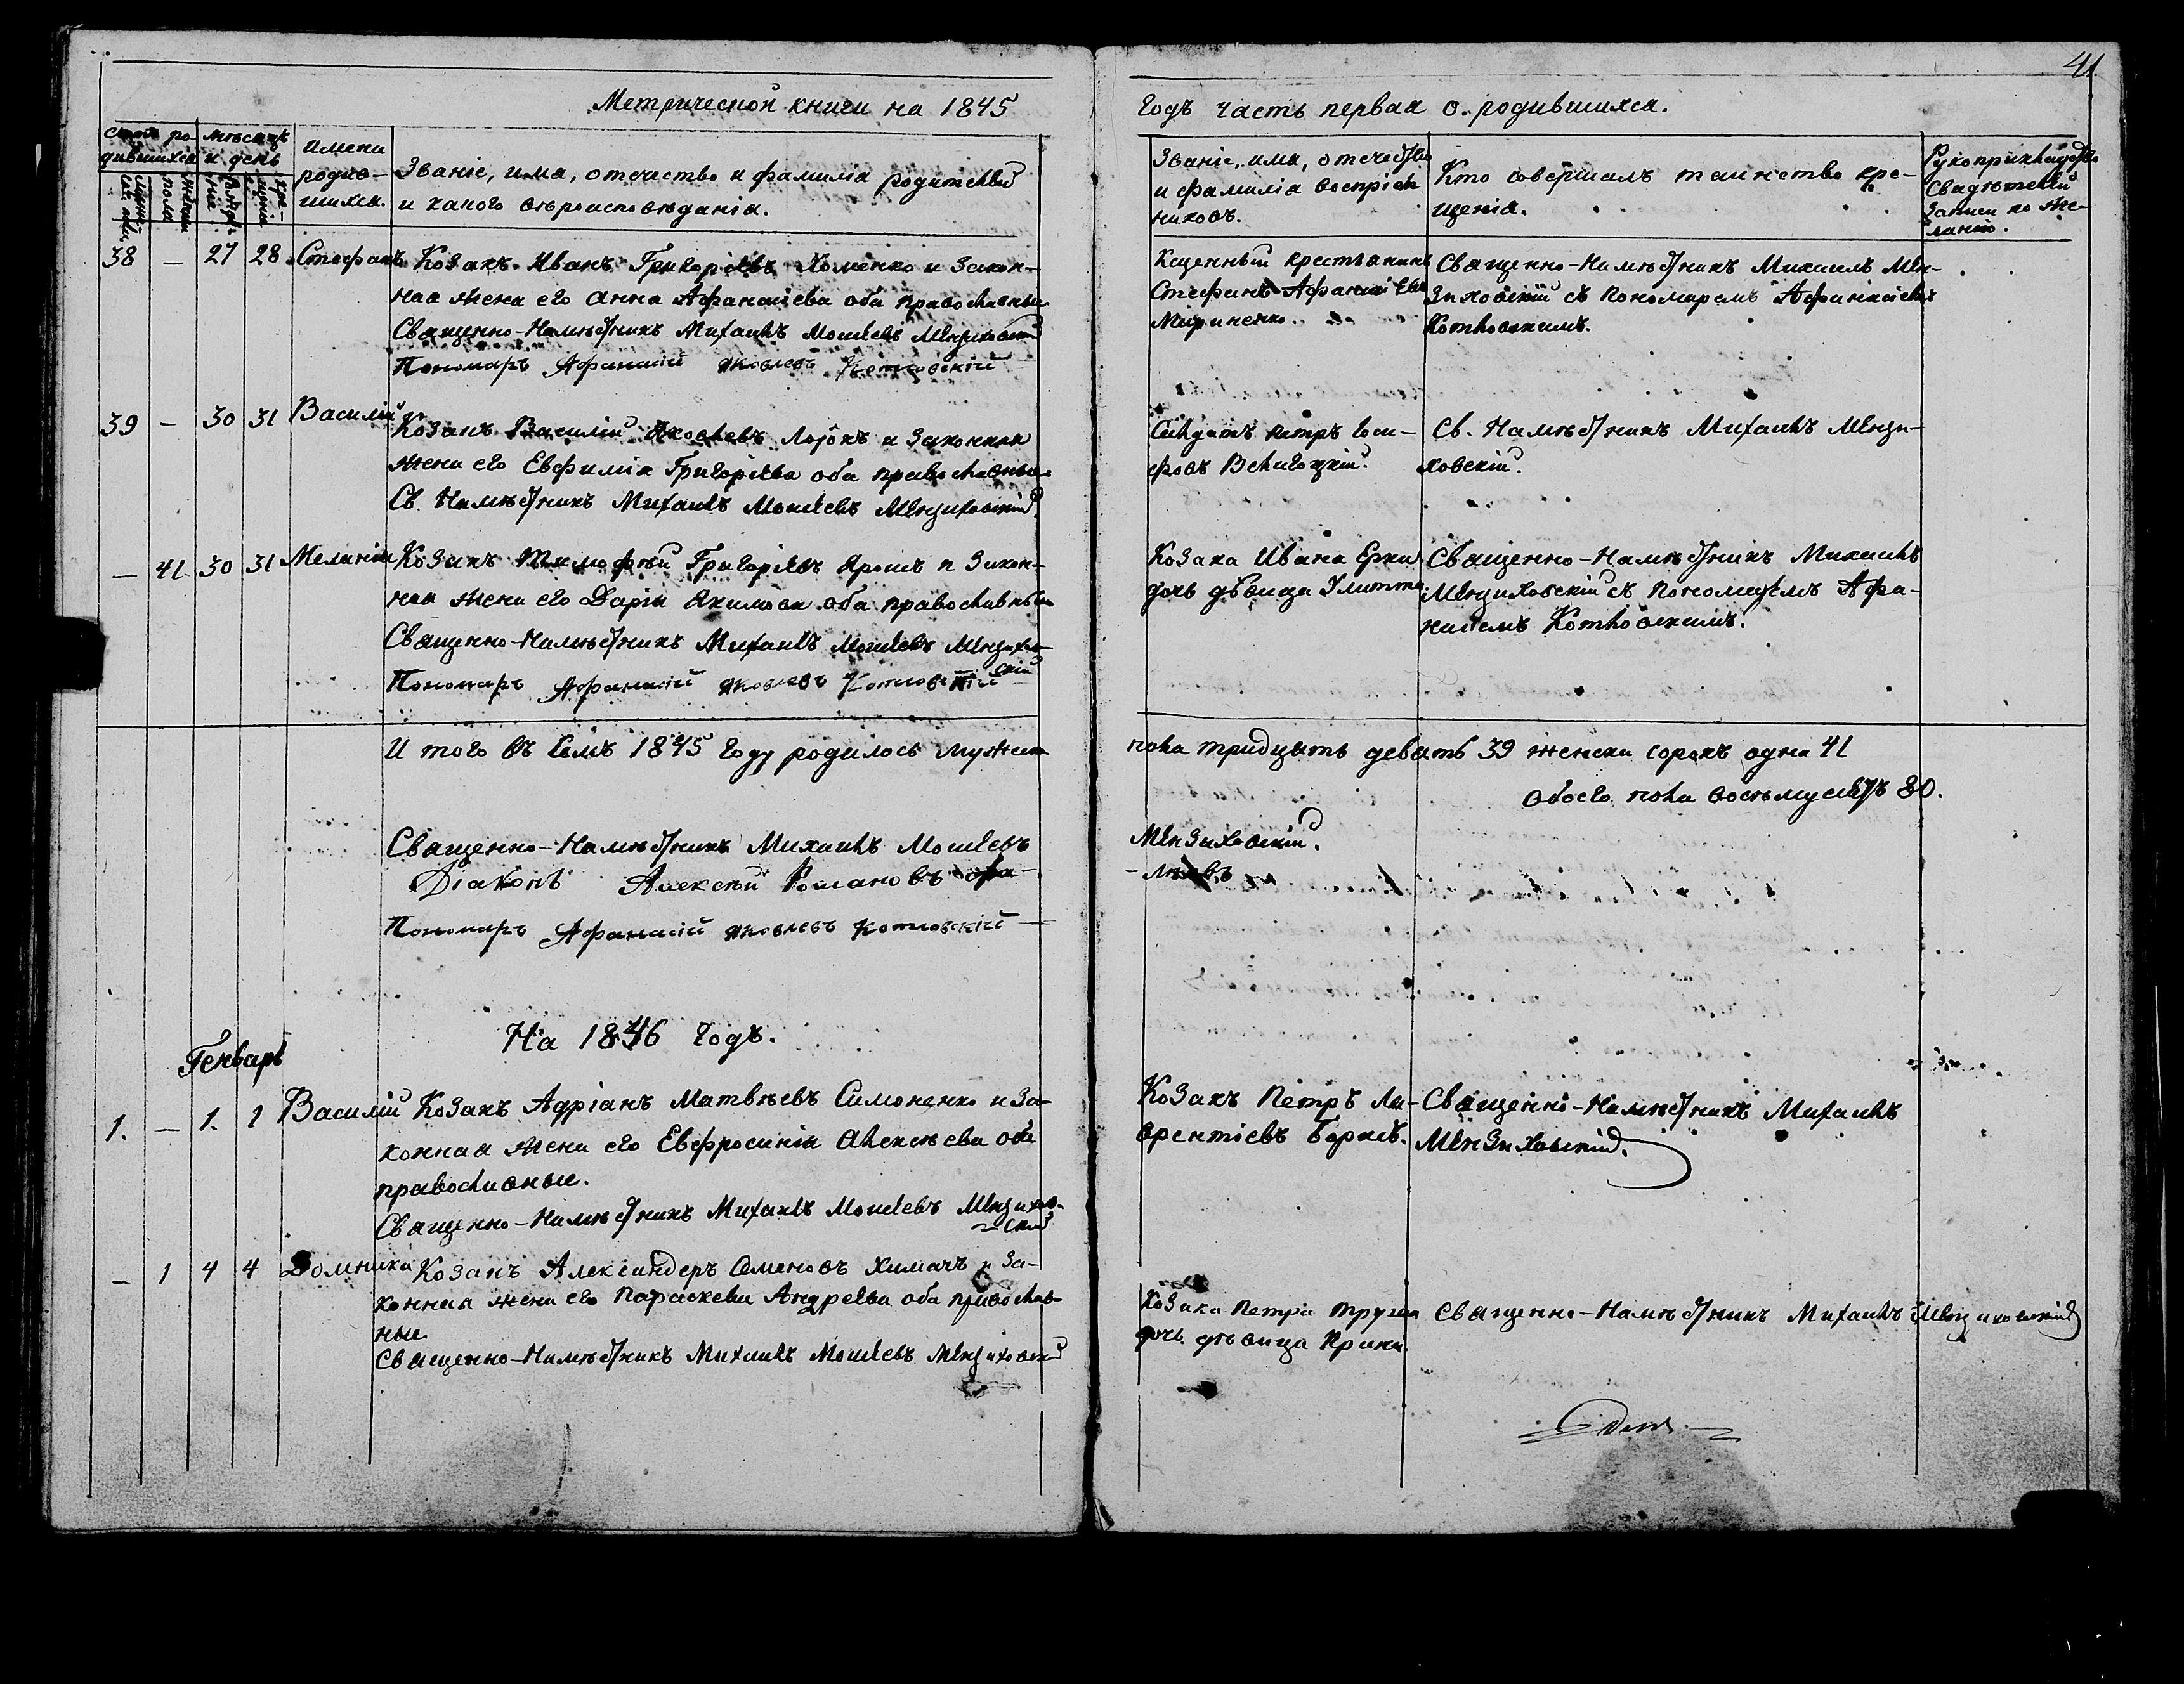 41
Метрической книги на 1845
годъ часть первая о родившихся.
Счетъ ро-
дившихся
мѣсяцъ
и день
имена
родив-
шихся.
Званіе, имя, отчество и фамилія родителей
и какого вѣроисповѣданія.
Званіе, имя, отечество
и фамилія воспріем
никовъ.
Кто совершалъ таинство кре-
щенія.
Рукоприкладство
Свидѣтелей
Записи по же-
ланію.
38 — 27 28 Стефанъ
Козакъ Иванъ Григоріевъ Хоменко и закон-
ная жена его Анна Афанасіева оба православные
Священно-Намѣстникъ Михаилъ Моисеевъ Мензиховскій
Пономаръ Афанасій Яковлевъ Котловскій
крестьянинъ
Стефанъ Афанасіевъ
Мариненко.
Священно-Намѣстникъ Михаилъ Мен-
зиховскій съ Пономаремъ Афанасіемъ
Котловскимъ.
39 — 30 31 Василій
Козакъ Василій Яковлевъ и законная
жена его Евфимія Григоріева оба православные
Св. Намѣстникъ Михаилъ Моисеевъ Мензиховскій
Солдатъ Петръ Іоси-
фовъ Велигоцкій.
Св. Намѣстникъ Михаилъ Мензи-
ховскій.
— 41 30 31 Меланія
Козакъ Тимофѣй Григоріевъ Ярошъ и закон-
ная жена его Дарія Якимова оба православные
Священно-Намѣстникъ Михаилъ Моисеевъ Мензихов-
скій
Пономаръ Афанасій Яковлевъ Котловскій
Козака Ивана
дочь дѣвица Улитта
Священно-Намѣстникъ Михаилъ
Мензиховскій съ Пономаремъ Афа-
насіемъ Котловскимъ.
И того въ семъ 1845 году родилось мужска
пола тридцать девять 39 женска сорокъ одна 41
обоего пола восемьдесятъ 80.
Священно-Намѣстникъ Михаилъ Моисеевъ
Мензиховскій.
Діаконъ Алексѣй Романовъ
Пономаръ Афанасій Яковлевъ Котловскій
На 1846 годъ.
Генварь
1. — 1. 1 Василій
Козакъ Адріанъ Матвѣевъ Симоненко и за-
конная жена его Евфросинія Алексѣева оба
православные.
Священно-Намѣстникъ Михаилъ Моисеевъ Мензихов-
скій
Козакъ Петръ Ла-
врентіевъ
Священно-Намѣстникъ Михаилъ
Мензиховскій.
— 1 4 4 Домникія
Козакъ Александеръ Семеновъ Химачъ и за-
конная жена его Параскева Андреева оба православ-
ные
Священно-Намѣстникъ Михаилъ Моисеевъ Мензиховскій
Козака Петра
дочь дѣвица Ирина.
Священно-Намѣстникъ Михаилъ Мензиховскій